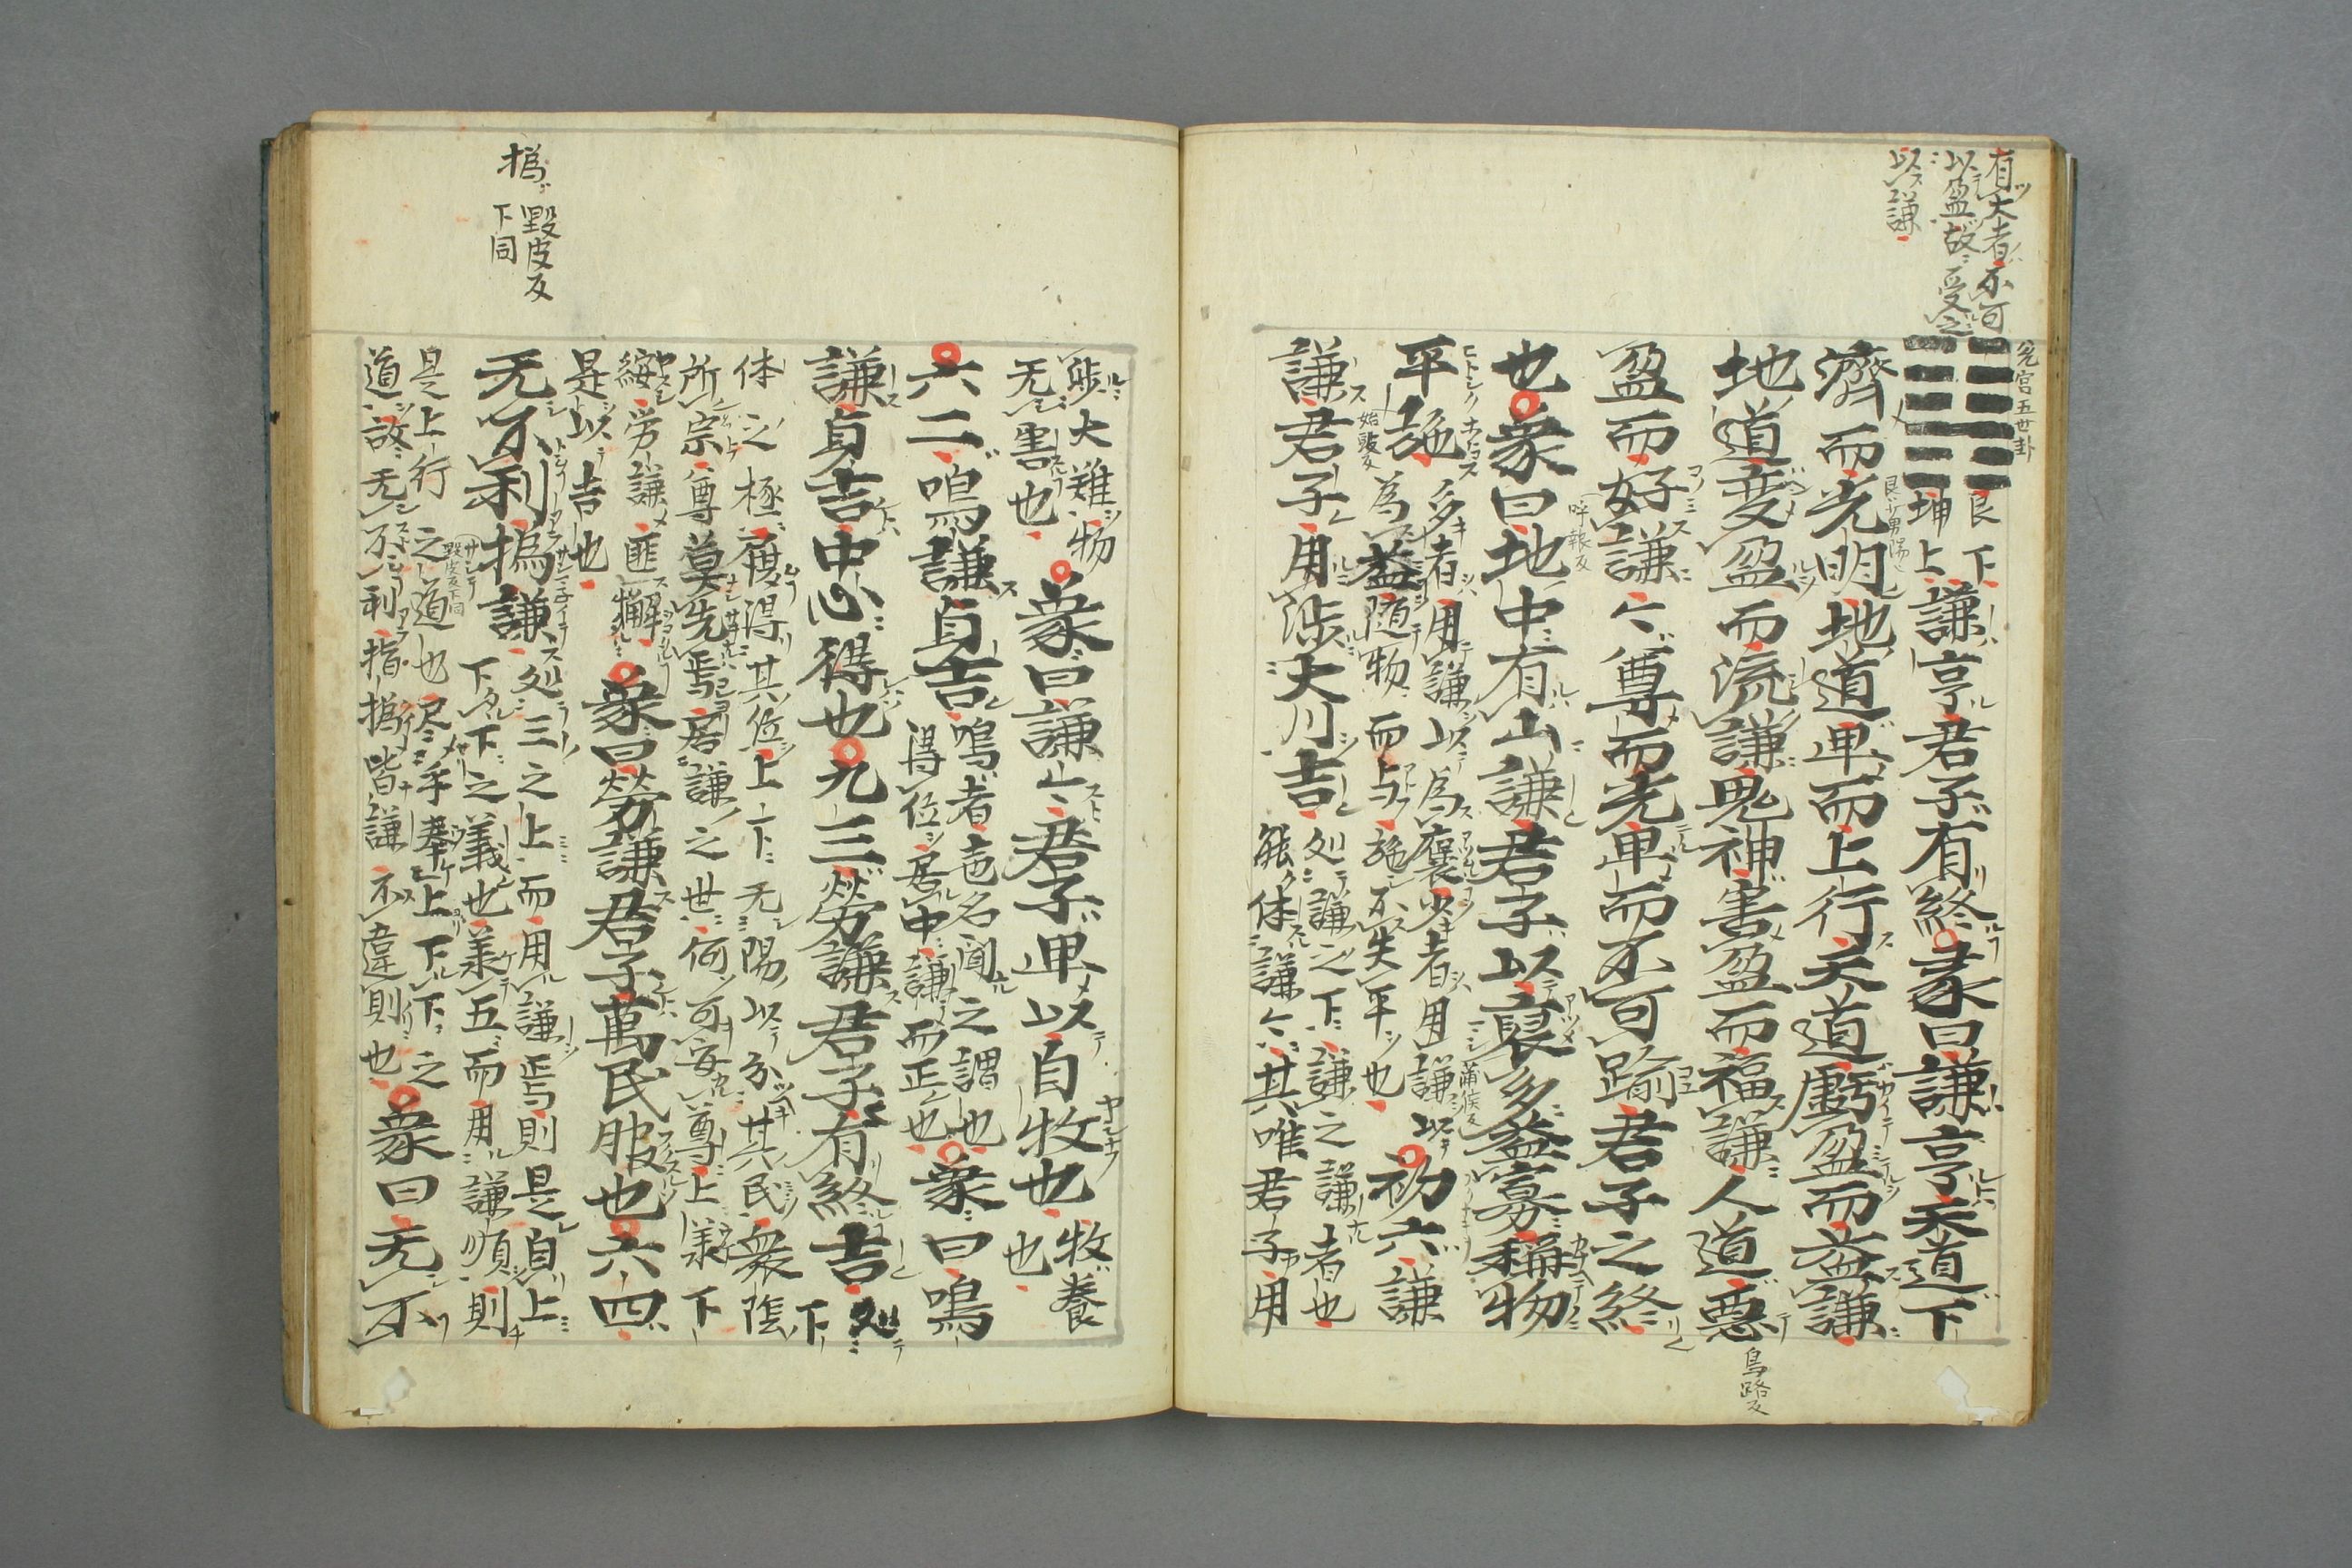 有大者不可
以盈故受之
以謙
兌宮五世卦
艮下
坤上
謙亨君子有終彖曰謙亨天道下
濟而光明地道卑而上行天道虧盈而益謙
地道変盈而流謙鬼神害盈而福謙人道惡
烏路反
盈而好謙々尊而光卑而不可踰君子之終
呼報反
也象曰地中有山謙君子以裒多益寡稱物
蒲侯反
平施
始豉反
多者用謙以為裒少者用謙以
為益随物而与施不失平也
初六謙
謙君子用渉大川吉
処謙之下謙之謙者也
能体謙々其唯君子用
渉大難物
无害也
象曰謙々君子卑以自牧也
牧養
也
六二鳴謙貞吉
鳴者声名聞之謂也
得位居中謙而正也
象曰鳴
謙貞吉中心得也九三勞謙君子有終吉
処
下
体之極履得其位上下无陽以分其民衆陰
所宗尊莫先焉居謙之世何可安尊上羕下
綏労謙匪懈
是以吉也
象曰勞謙君子萬民服也六四
无不利撝謙
処三之上而用謙焉則是自上
下下之義也羕五而用謙順則
是上行之道也尽手奉上下下之
道故无不利指撝皆謙不違則也
毀皮反下同
象曰无不
撝
毀皮反
下同